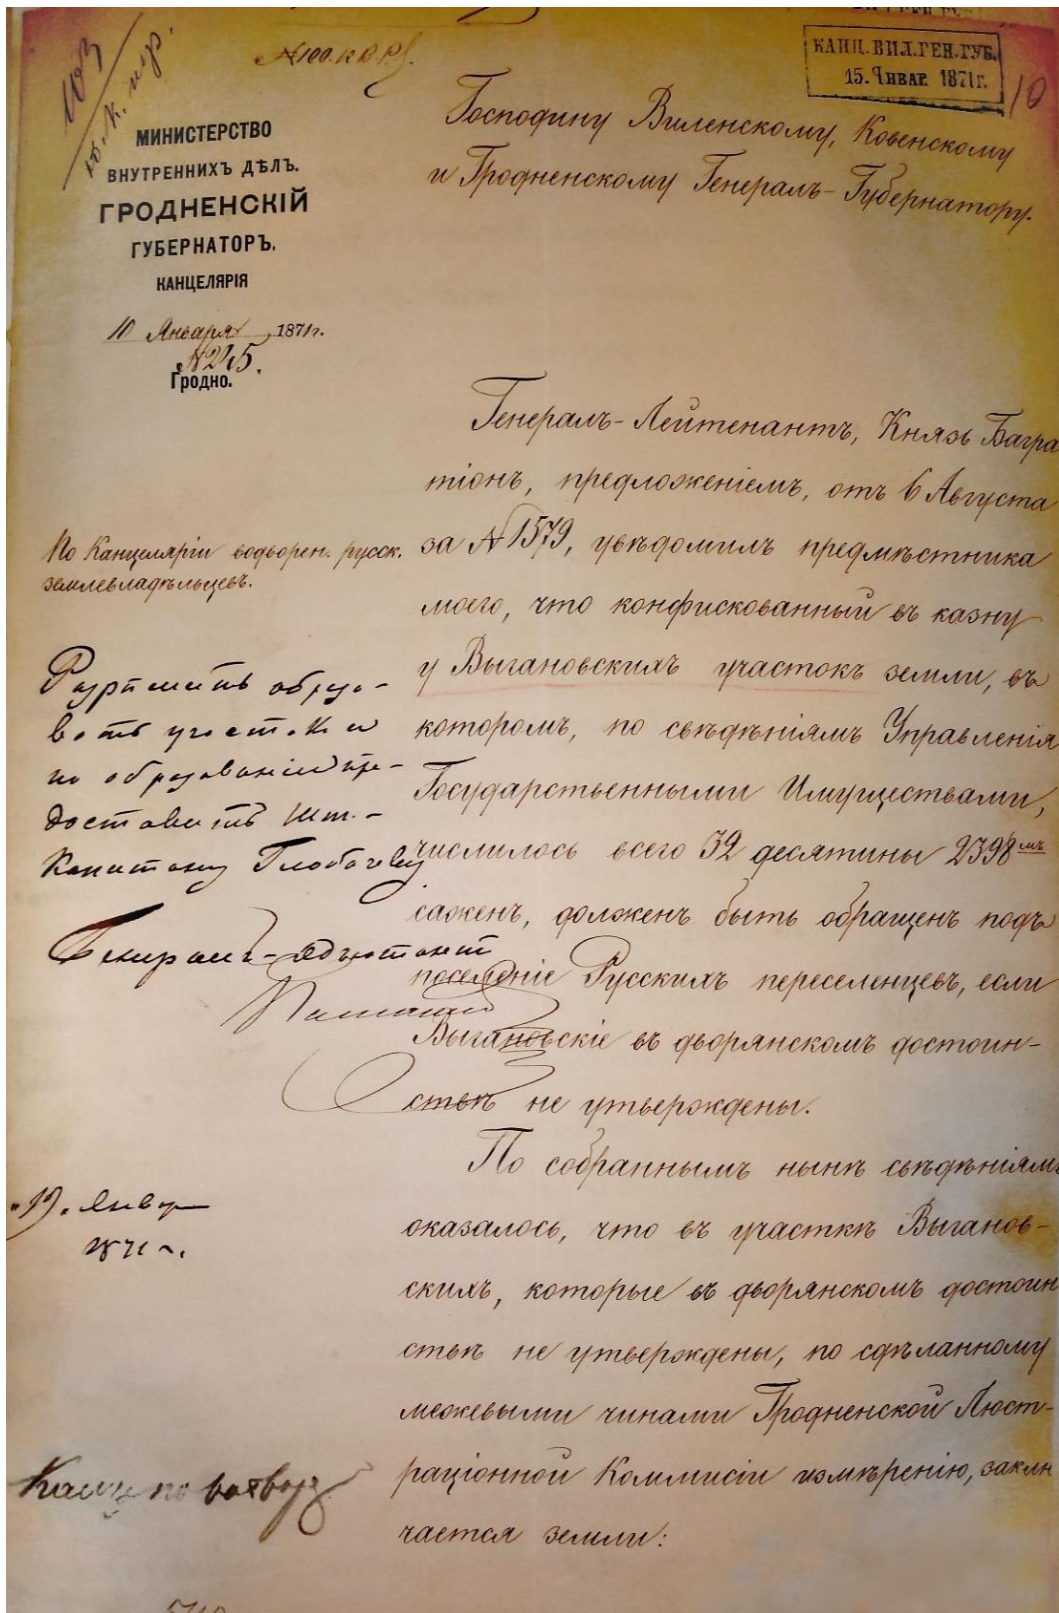 КАНЦ. ВИЛ. ГЕН. ГУБ.
15. ЯНВАР. 1871 г.
10
103
МИНИСТЕРСТВО
ВНУТРЕННИХЪ ДѢЛЪ.
ГРОДНЕНСКІЙ
ГУБЕРНАТОРЪ.
КАНЦЕЛЯРІЯ
10 Января 1871 г.
№ 245.
Гродно.
По Канцеляріи водворен. русск.
землевладѣльцевъ.
Разрѣшить образо-
вать участокъ и
по образованіи пре-
доставить Шт.-
Капитану
Генералъ-Адъютантъ
19. Января
1871 г.
Канц. по водвор.
Господину Виленскому, Ковенскому
и Гродненскому Генералъ-Губернатору.
Генералъ-Лейтенантъ, Князь Багра
тіонъ, предложеніемъ, отъ 6 Августа
за № 1579, увѣдомилъ предмѣстника
моего, что конфискованный въ казну
у Выгановскихъ участокъ земли, въ
которомъ, по свѣдѣніямъ Управленія
Государственными Имуществами,
числилось всего 32 десятины 2398
сажень, долженъ быть обращенъ подъ
поселеніе Русскихъ переселенцевъ, если
Выгановскіе въ дворянскомъ достоин-
ствѣ не утверждены.
По собраннымъ нынѣ свѣдѣніямъ
оказалось, что въ участкѣ Выганов-
скихъ, которые въ дворянскомъ достоин
ствѣ не утверждены, по сдѣланному
межевыми чинами Гродненской Люст-
раціонной Коммисіи измѣренію, заклю
чается земли: